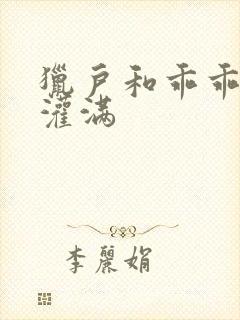 獵戶和乖乖
灌满
李麗娟